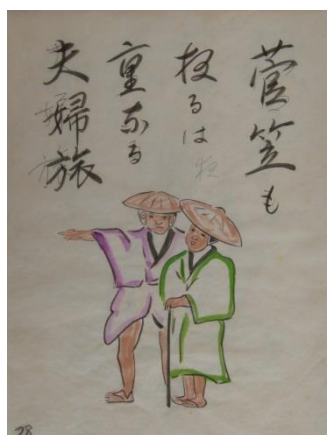 菅笠も
夜るは
重なる
夫婦旅
28